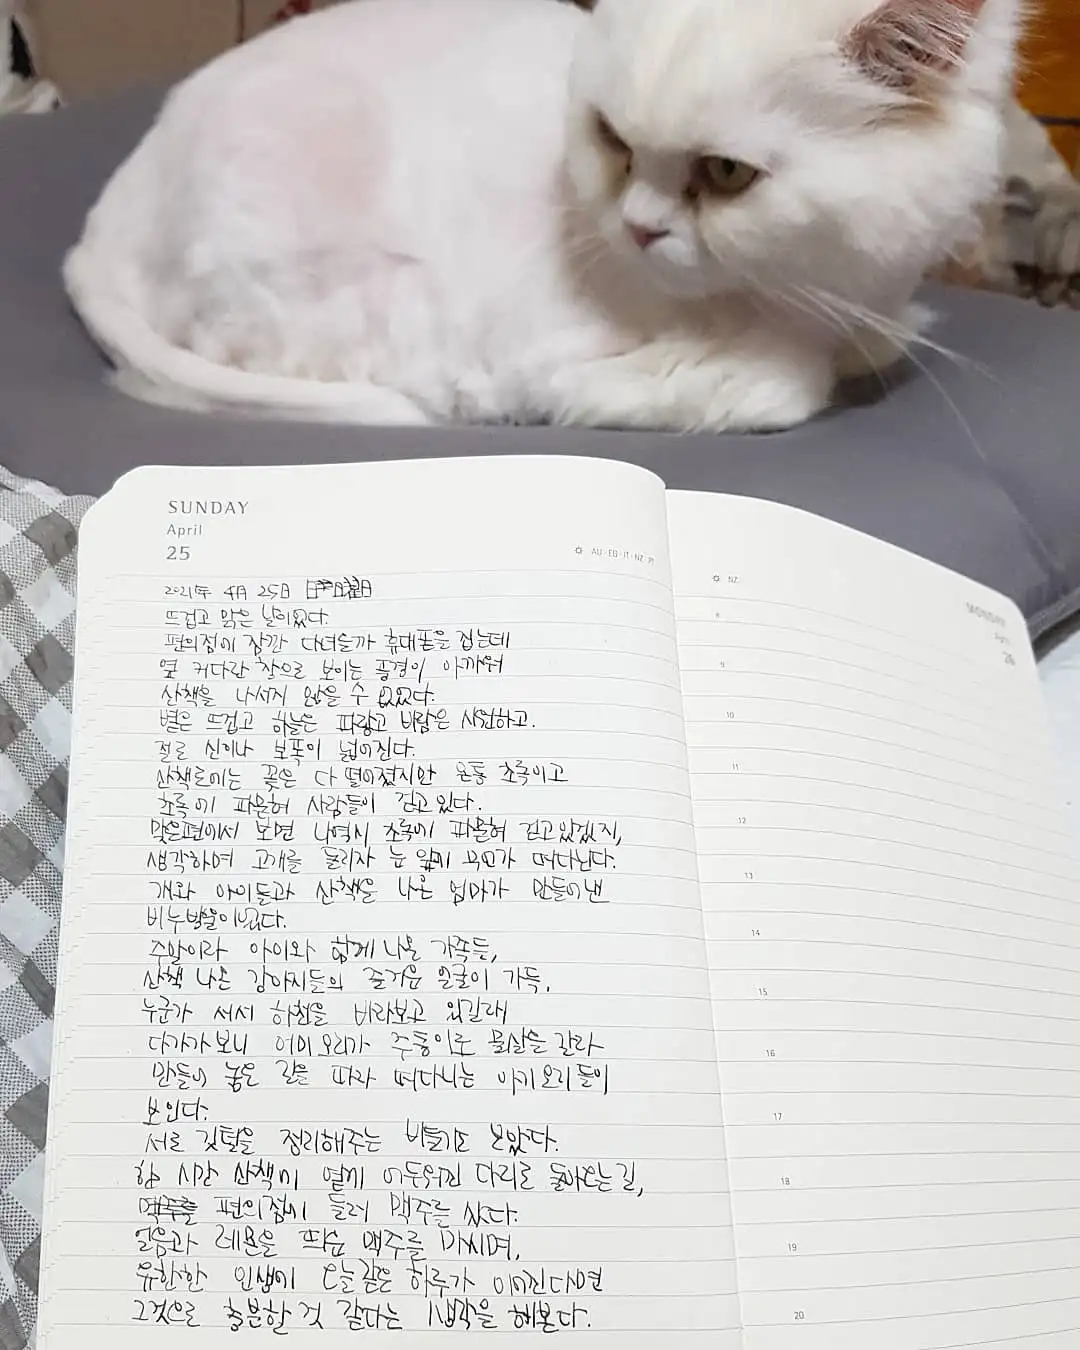 SUNDAY
April
25
AU·EG·IT·NZ PT
2021年 4月 25日 日曜日
뜨겁고 맑은 날이었다.
편의점에 잠깐 다녀올까 휴대폰을 집는데
옆 커다란 창으로 보이는 풍경이 아까워
산책을 나서지 않을 수 없었다.
볕은 뜨겁고 하늘은 파랗고 바람은 시원하고.
절로 신이나 보폭이 넓어진다.
산책로에는 꽃은 다 떨어졌지만 온통 초록이고
초록에 파묻혀 사람들이 걷고 있다.
맞은편에서 보면 나 역시 초록에 파묻혀 걷고 있겠지,
생각하며 고개를 돌리자 눈 앞에 무언가 떠다닌다.
개와 아이들과 산책을 나온 엄마가 만들어낸
비누방울이었다.
주말이라 아이와 함께 나온 가족들,
산책 나온 강아지들의 즐거운 얼굴이 가득.
누군가 서서 하천을 바라보고 있길래
다가가 보니 어미 오리가 주둥이로 물살을 갈라
만들어 놓은 길을 따라 떠다니는 아기 오리들이
보인다.
서로 깃털을 정리해주는 비둘기도 보았다.
한 시간 산책에 옅게 어두워진 다리로 돌아오는 길,
편의점에 들러 맥주를 샀다.
얼음과 레몬을 띄운 맥주를 마시며,
유한한 인생에 오늘같은 하루가 이어진다면
그것으로 충분한 것 같다는 생각을 해본다.
NZ
MONDAY
April
26
8
9
10
11
12
13
14
15
16
17
18
19
20